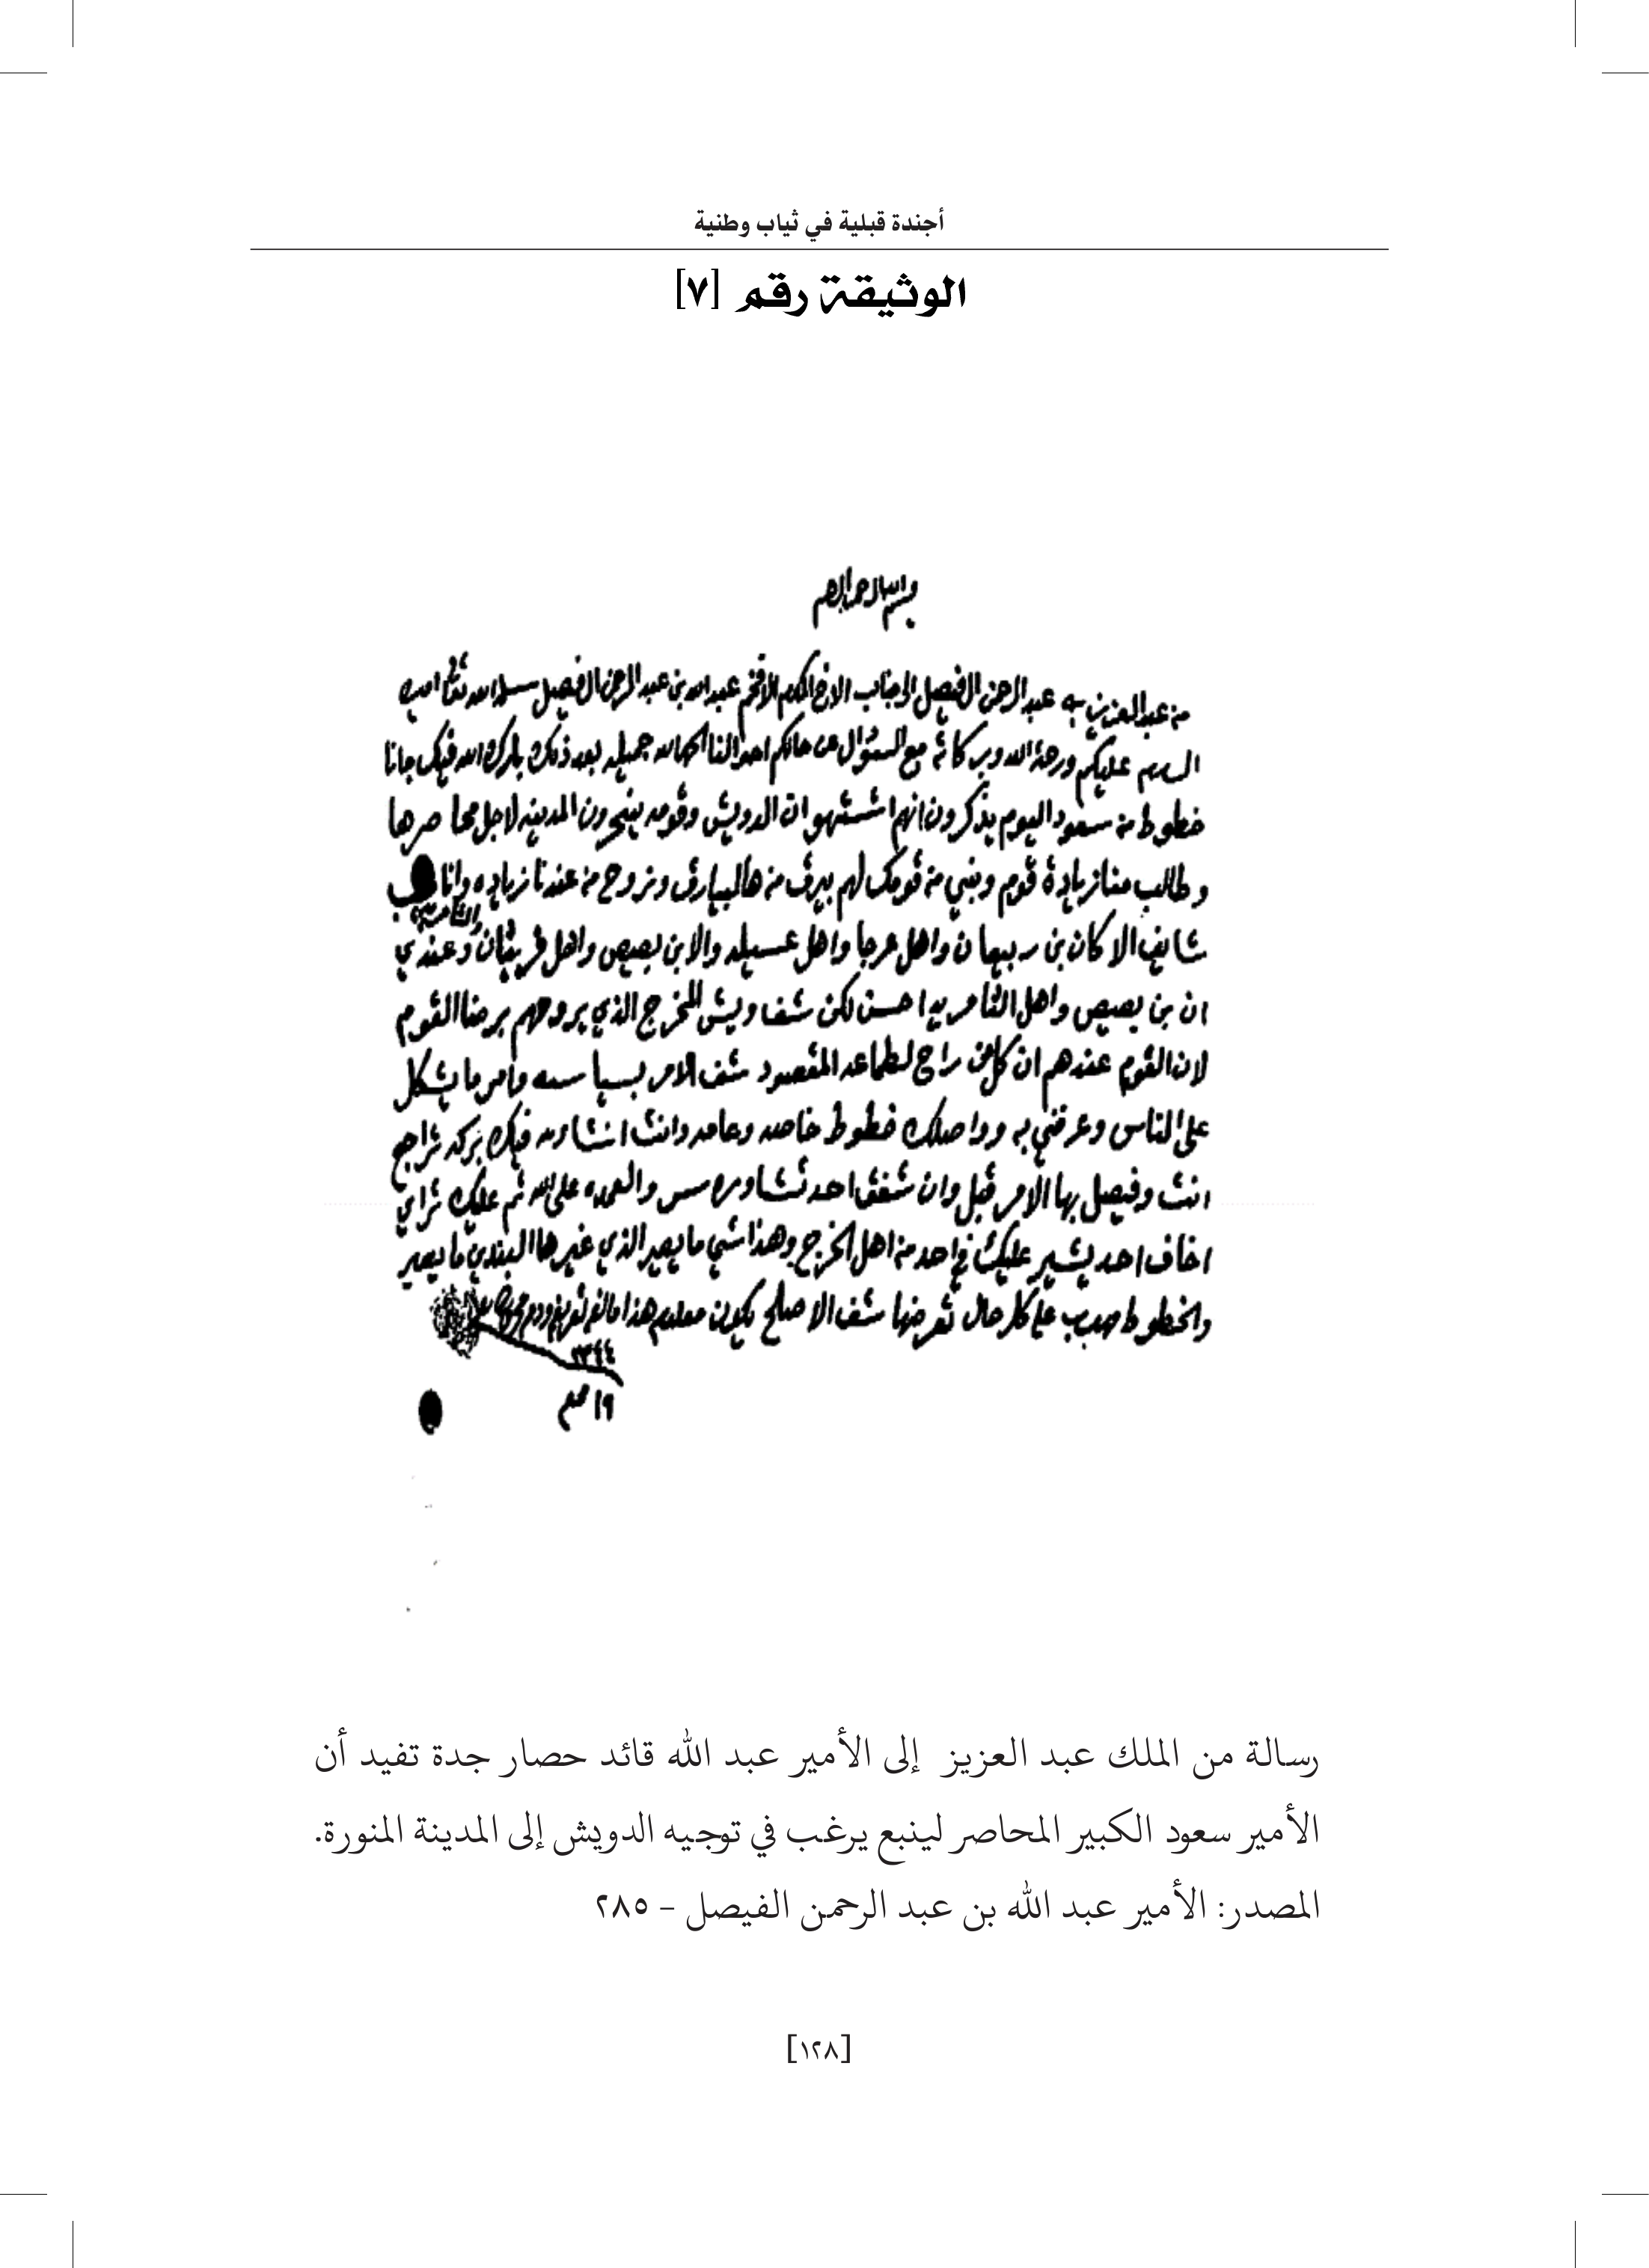 أجندة قبلية في ثياب وطنية
الوثيقة رقم [٧]
بسم الله الرحمن الرحيم
من عبدالعزيز بن عبد الرحمن الفيصل الى جناب الاخ المكرم الافخم عبدالله بن عبدالرحمن الفيصل سلمه الله تعالى امين
السلام عليكم ورحمة الله وبركاته مع السؤال عن حالكم احوالنا الحمدلله جميله بعد ذلك بارك الله فيك جانا
خطوط من سعود اليوم يذكرون انهم اشتهوا ان الدويش وقومه ينحرون المدينه لاجل محاصرها
وطالب منا زيادة قوم ونبي من قومك لهم بيرق من هالبيارق ونروح من عندنا زياده وانا
شايف الا كان بن ربيعان واهل عرجا واهل عسيله والا بن بصيص واهل فريثان وعندي
ان بن بصيص واهل احسن لكن شف ويش المخرج الذي يروحهم برضا القوم
لان القوم عندهم ان كلمن راح لطماعه المقصود شف الامر بسياسه وامر ما يشكل
على الناس وعرفني به وواصلك خطوط خاصه وعامه وانت انشاءالله فيك بركه تراجع
انت وفيصل بها الامر قبل وان شفت احد تشاوره والعمده على الله ثم عليك تراي
اخاف احد يشير عليك في احد من اهل الخرج وهذا شي ما يصير الذي غير هاالبندي ما يصير
والخطوط على كل حال تعرضها شف الاصلح يكون معلوم هذا مالزم تعريفه ودم محروس
١٣٤٤
١٩ محرم
رسالة من الملك عبد العزيز إلى الأمير عبد الله قائد حصار جدة تفيد أن
الأمير سعود الكبير المحاصر لينبع يرغب في توجيه الدويش إلى المدينة المنورة.
المصدر: الأمير عبد الله بن عبد الرحمن الفيصل - ٢٨٥
[١٢٨]